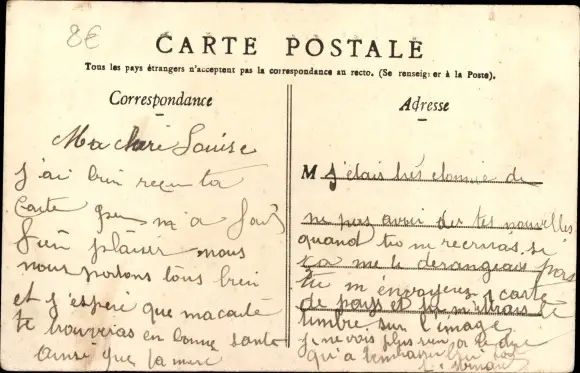 8€
CARTE POSTALE
Tous les pays étrangers n'acceptent pas la correspondance au recto. (Se renseigner à la Poste).
Correspondance
Adresse
Ma chère Louise
j'ai bien reçu ta
carte qui m'a fait
bien plaisir nous
nous portons tous bien
et j'espère que ma carte
te trouveras en bonne santé
ainsi que ta mère
M j'étais très étonnée de
ne pas avoir de tes nouvelles
quand tu m'écriras si
ça ne te dérangeais pas
tu m'envoyeras 1 carte
de pays et tu mettrais le
timbre sur l'image
je ne vois plus rien a te dire
qu'a t'embrasser